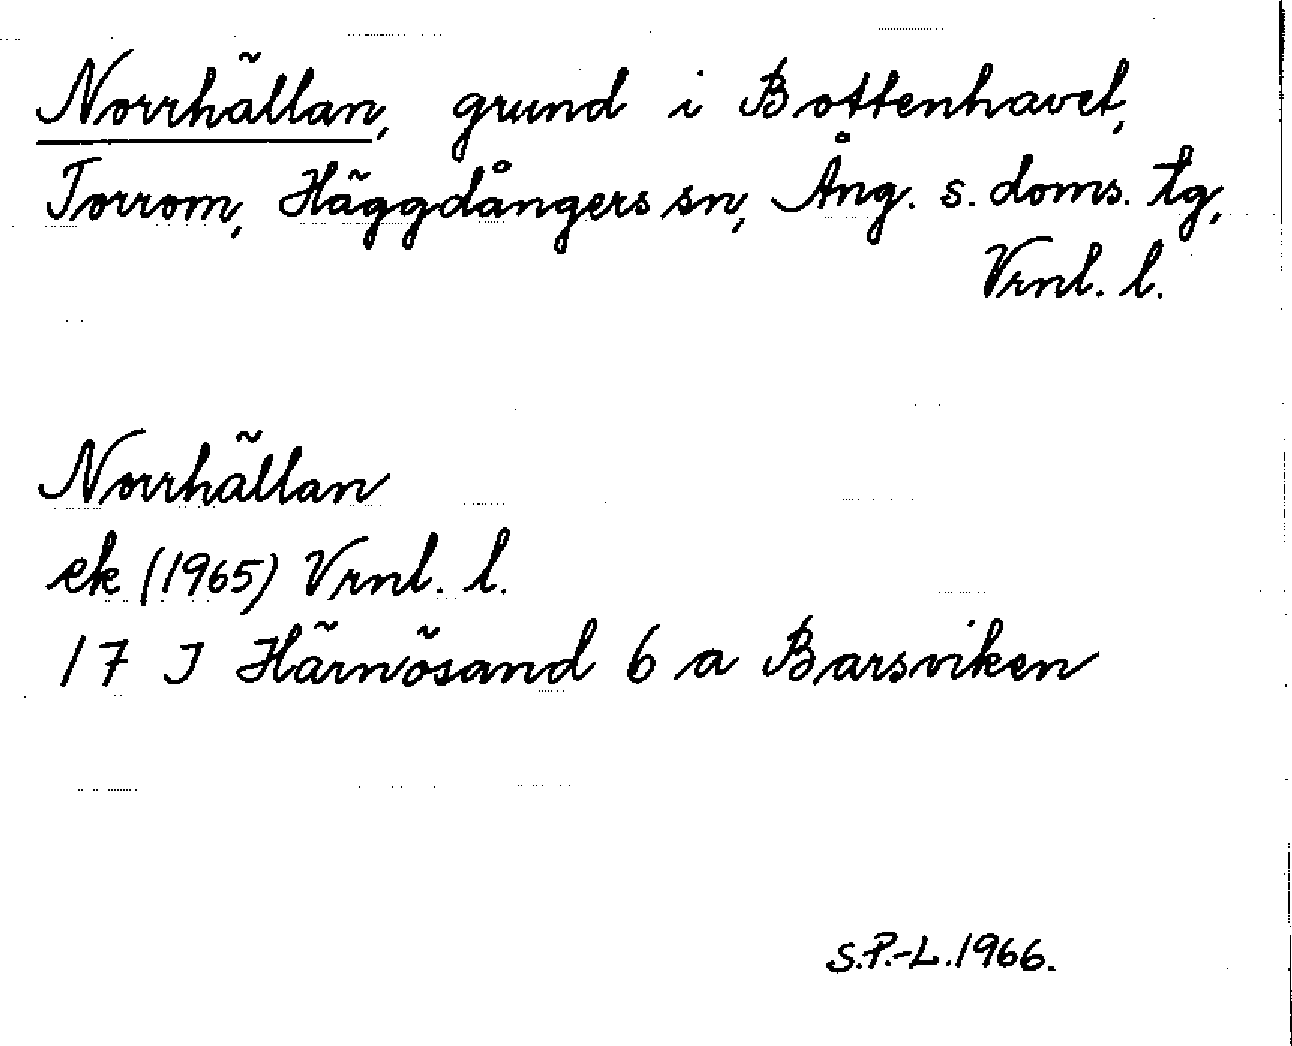 Norrhällan, grund i Bottenhavet,
Torrom, Häggdångers sn, Ång. s. doms. tg,
Vrnl. l.
Norrhällan
ek (1965) Vrnl. l.
17 J Härnösand 6 a Barsviken
S.P.-L. 1966.